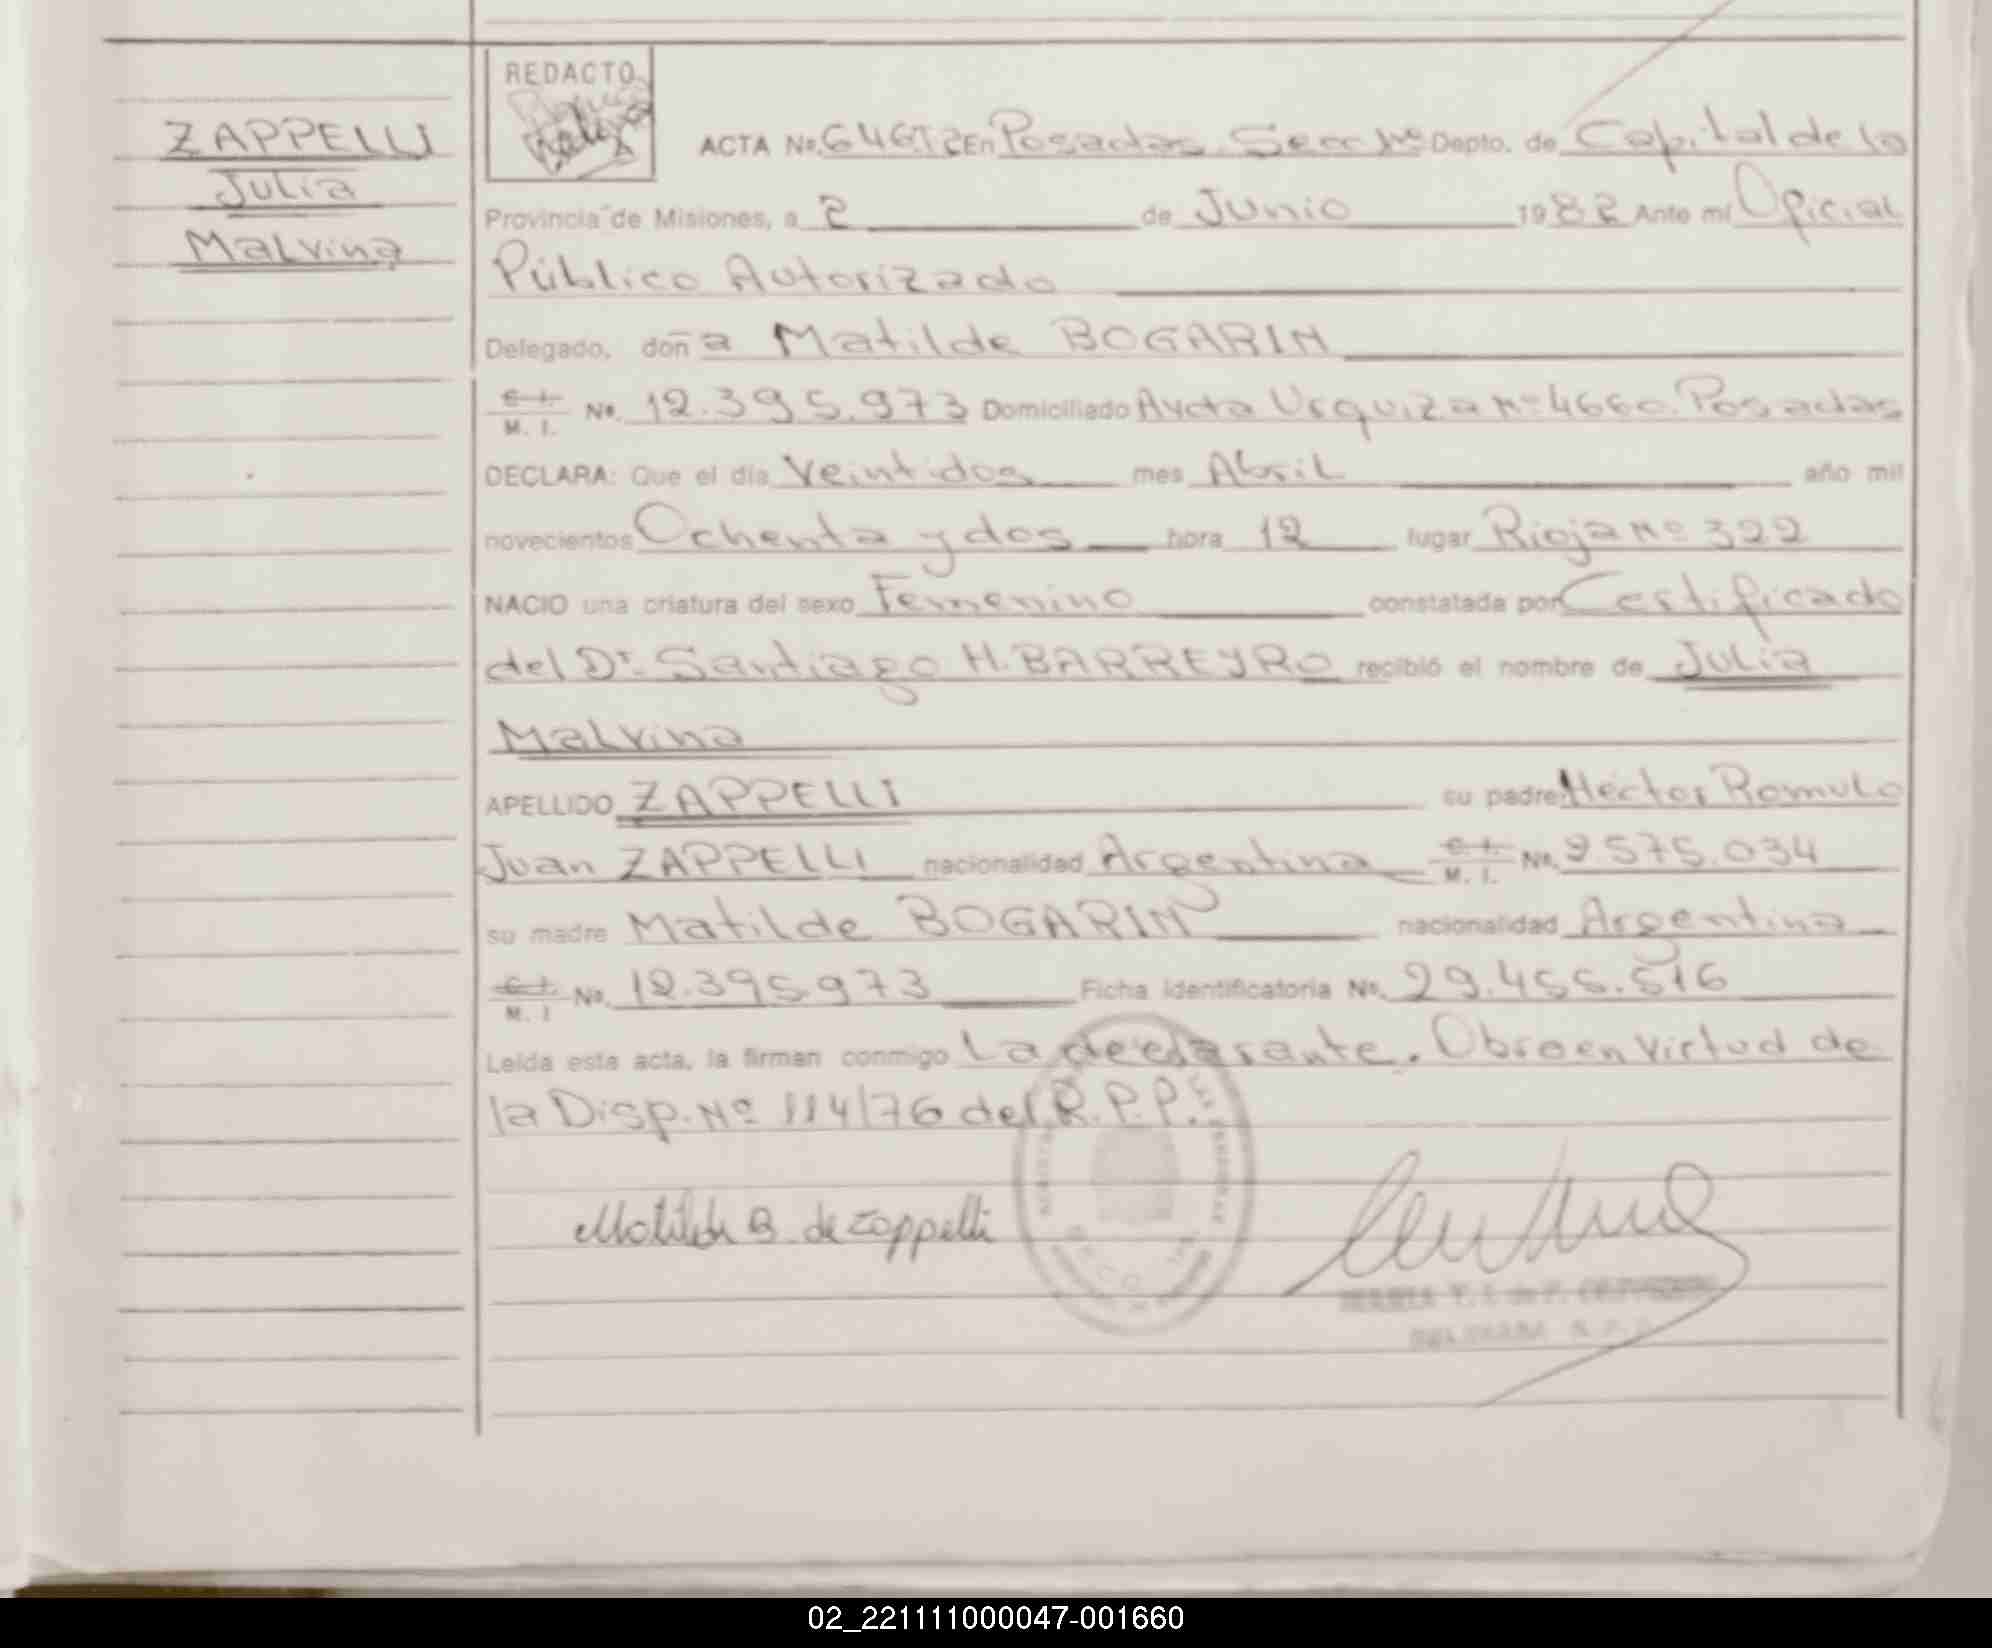 REDACTO
ZAPPELLI
Julia
Malvina
ACTA No. 646T2 En Posadas Secc 1ra Depto. de Capital de la
Provincia de Misiones, a 2 de Junio 1982 Ante mí Oficial
Público Autorizado
Delegado, doña Matilde BOGARIN
C. I. M. I. No. 12.395.973 Domiciliado Avda Urquiza Nº 4660. Posadas
DECLARA: Que el día Veintidos mes Abril año mil
novecientos Ochenta y dos hora 12 lugar Rioja Nº 322
NACIO una criatura del sexo Femenino constatada por Certificado
del Dr. Santiago H. BARREYRO recibió el nombre de Julia
Malvina
APELLIDO ZAPPELLI su padre Héctor Romulo
Juan ZAPPELLI nacionalidad Argentina C. I. M. I. No. 9.575.034
su madre Matilde BOGARIN nacionalidad Argentina
C. I. M. I No. 12.395.973 Ficha Identificatoria No. 29.455.516
Leída esta acta, la firman conmigo La declarante. Obro en virtud de
la Disp. Nº 114/76 del R.P.P.
Matilde B. de Zappelli
02_221111000047-001660